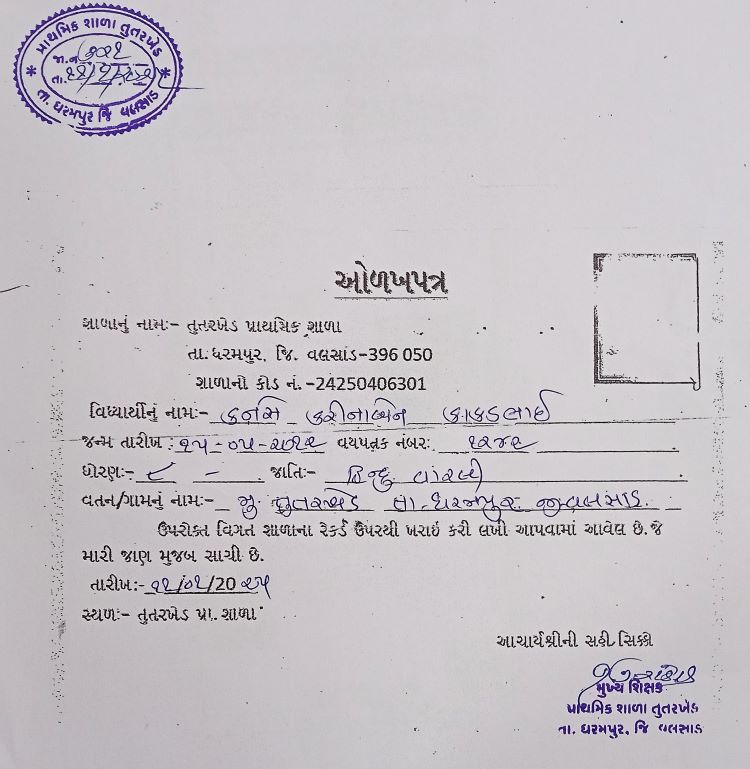 પ્રાથમિક શાળા તુતરખેડ
જા.ન
તા.
તા. ધરમપુર જિ વલસાડ
ઓળખપત્ર
શાળાનું નામઃ- તુતરખેડ પ્રાથમિક શાળા
તા.ધરમપુર, જિ. વલસાંડ-396 050
શાળાનો કોડ નં. -24250406301
વિધ્યાર્થીનું નામઃ- કનસિ કરીનાબેન કાકડભાઈ
જન્મ તારીખ : ૧૫-૦૫-૨૦૧૨ વયપત્રક નંબરઃ ૧૨૪૨
ધોરણઃ- ૮ - જાતિઃ- હિન્દુ વારલી
વતન/ગામનું નામઃ- મુ. તુતરખેડ તા. ધરમપુર જી વલસાડ
ઉપરોક્ત વિગત શાળાના રેકર્ડ ઉપરથી ખરાઇ કરી લખી આપવામાં આવેલ છે. જે
મારી જાણ મુજબ સાચી છે.
તારીખ:- ૨૨/૦૧/20૨૫
સ્થળઃ- તુતરખેડ પ્રા. શાળા
આચાર્યશ્રીની સહી સિક્કો
મુખ્ય શિક્ષક
પ્રાથમિક શાળા તુતરખેડ
તા. ધરમપુર, જિ વલસાડ